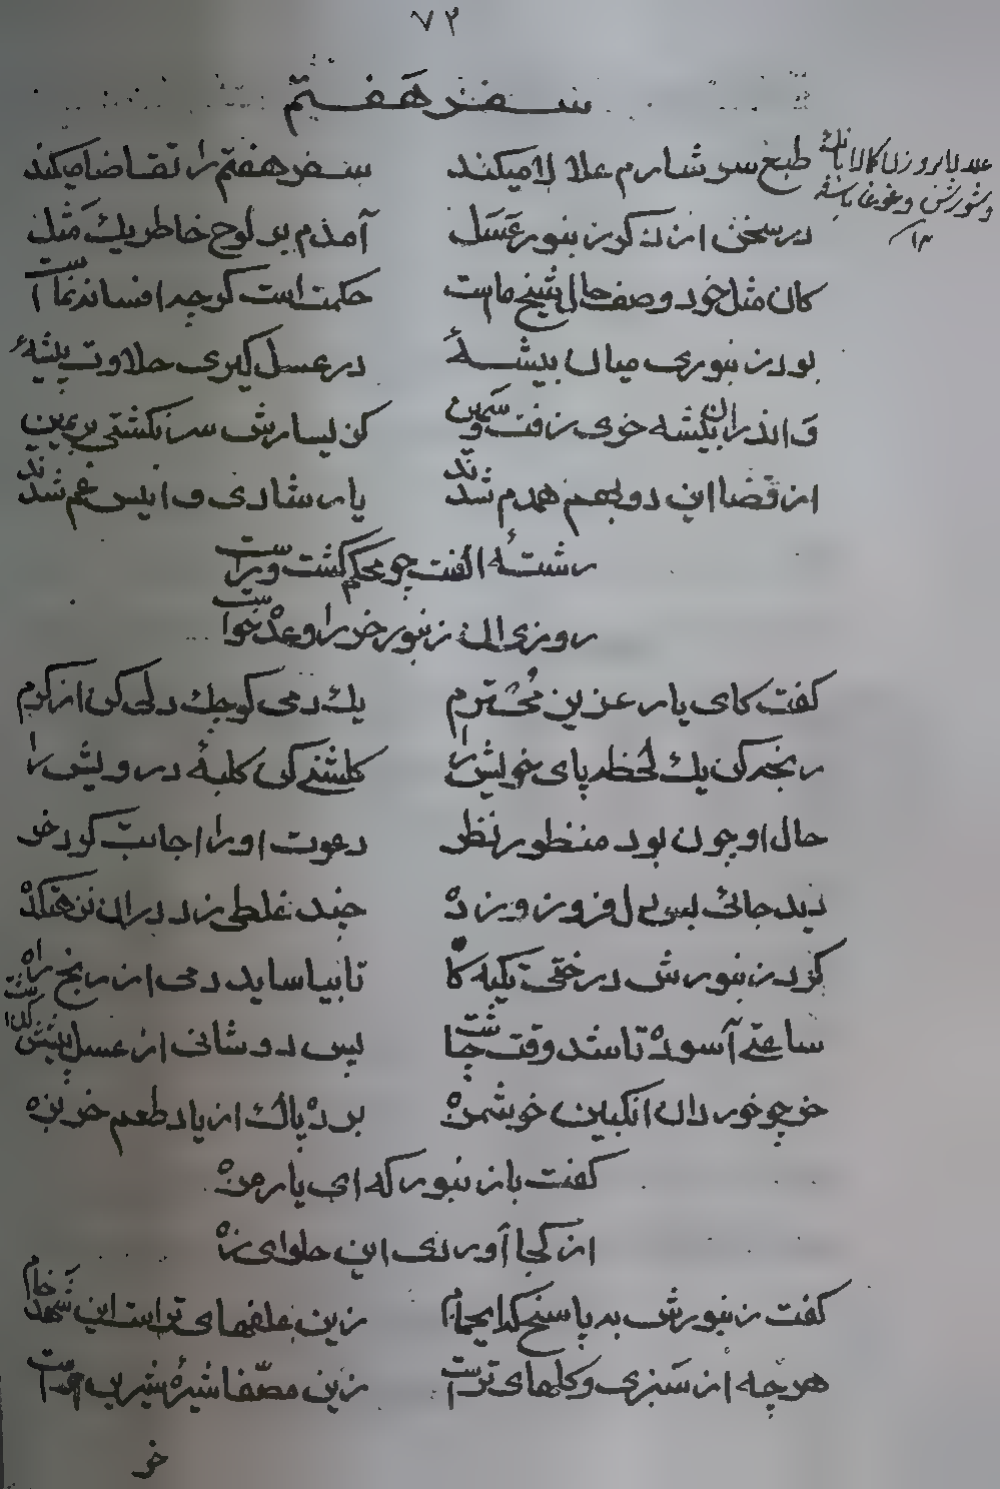 ۷۲
سفر هفتم
طبع سرشارم علالا میکند سفر هفتم را تقاضا میکند
در سخن از ذکر زنبور عسل آمدم بر لوح خاطر یک مثل
کان مثل خود وصف حال شیخ ماست حکمت است گرچه افسانه نماست
بود زنبوری میان بیشهٔ در عسل گیری حلاوت پیشهٔ
واندران بیشه خری زفت و سمین کز یسارش سر نگشتی بر یمین
از قضا این دو بهم همدم شدند یار شادی و انیس غم شدند
رشتهٔ الفت چو محکم گشت و راست
روزی ان زنبور خر را وعده خواست
گفت کای یار عزیز محترم یک دمی کوچک دلی کن از کرم
رنجه کن یک لحظه پای خویش را گلشنی کن کلبهٔ درویش را
حال او چون بود منظور نظر دعوت او را اجابت کرد خر
دید جائی بس دل فروز و نزه چند غلطی زد دران نزهتکده
کرد زنبورش درختی تکیه گاه تا بیاساید دمی از رنج راه
ساعتی آسوده تا شد وقت چاشت پس دو شانی از عسل پیشش گذاشت
خر چو خورد ان انگبین خوشمزه برد پاک از یاد طعم خربزه
گفت با زنبور که ای یار من
از کجا آوردی این حلوای
گفت زنبورش به پاسخ کای همام زین علفهای تر است این شهد خام
هر چه از سبزی و گلهای تر است زین مصفا شیرهٔ شیرین
خر